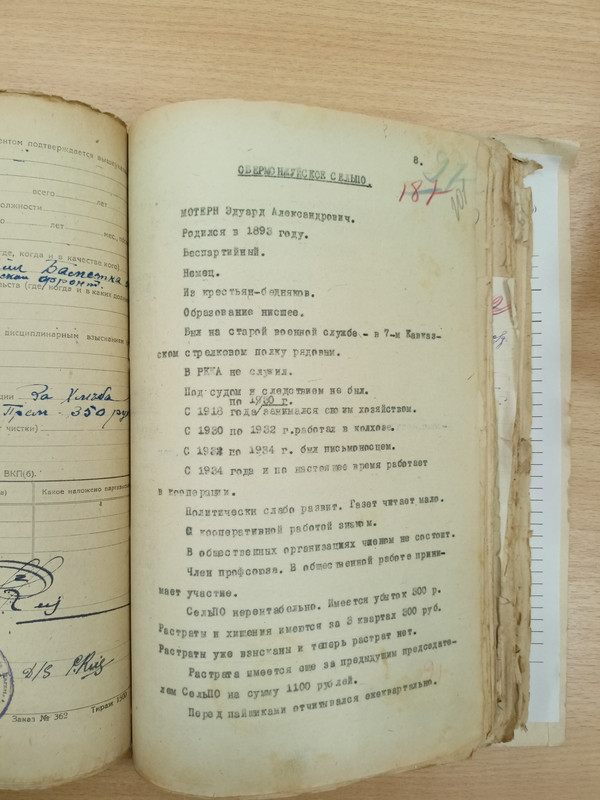 ентом подтверждается
всего лет
должности
лет мес.
где, когда и в качестве кого)
фронт.
ельств (где, когда и в каких
дисциплинарным взысканиям
ции За Хлѣба
Прем - 350 руб
чистки)
ВКП(б).
Какое наложено
D/S P. Reiz
Заказ № 362 Тираж 1500
8.
187
ОБЕРМОНЖУЙСКОЕ СЕЛЬПО.
МОТЕРН Эдуард Александрович.
Родился в 1893 году.
Беспартийный.
Немец.
Из крестьян-бедняков.
Образование нисшее.
Был на старой военной службе - в 7-м Кавказ-
ском стрелковом полку рядовым.
В РККА не служил.
Под судом и следствием не был.
по 1930 г.
С 1918 года/занимался своим хозяйством.
С 1930 по 1932 г.работал в колхозе.
С 1932 по 1934 г. был письмоносцем.
С 1934 года и по настоящее время работает
в кооперации.
Политически слабо развит. Газет читает мало.
С кооперативной работой знаком.
В общественных организациях членом не состоит.
Член профсоюза. В общественной работе прини-
мает участие.
СельПО нерентабельно. Имеется убыток 300 р.
Растраты и хищения имеются за 3 квартал 300 руб.
Растраты уже взысканы и теперь растрат нет.
Растрата имеется еще за предыдущим председате-
лем СельПО на сумму 1100 рублей.
Перед пайщиками отчитывался ежеквартально.